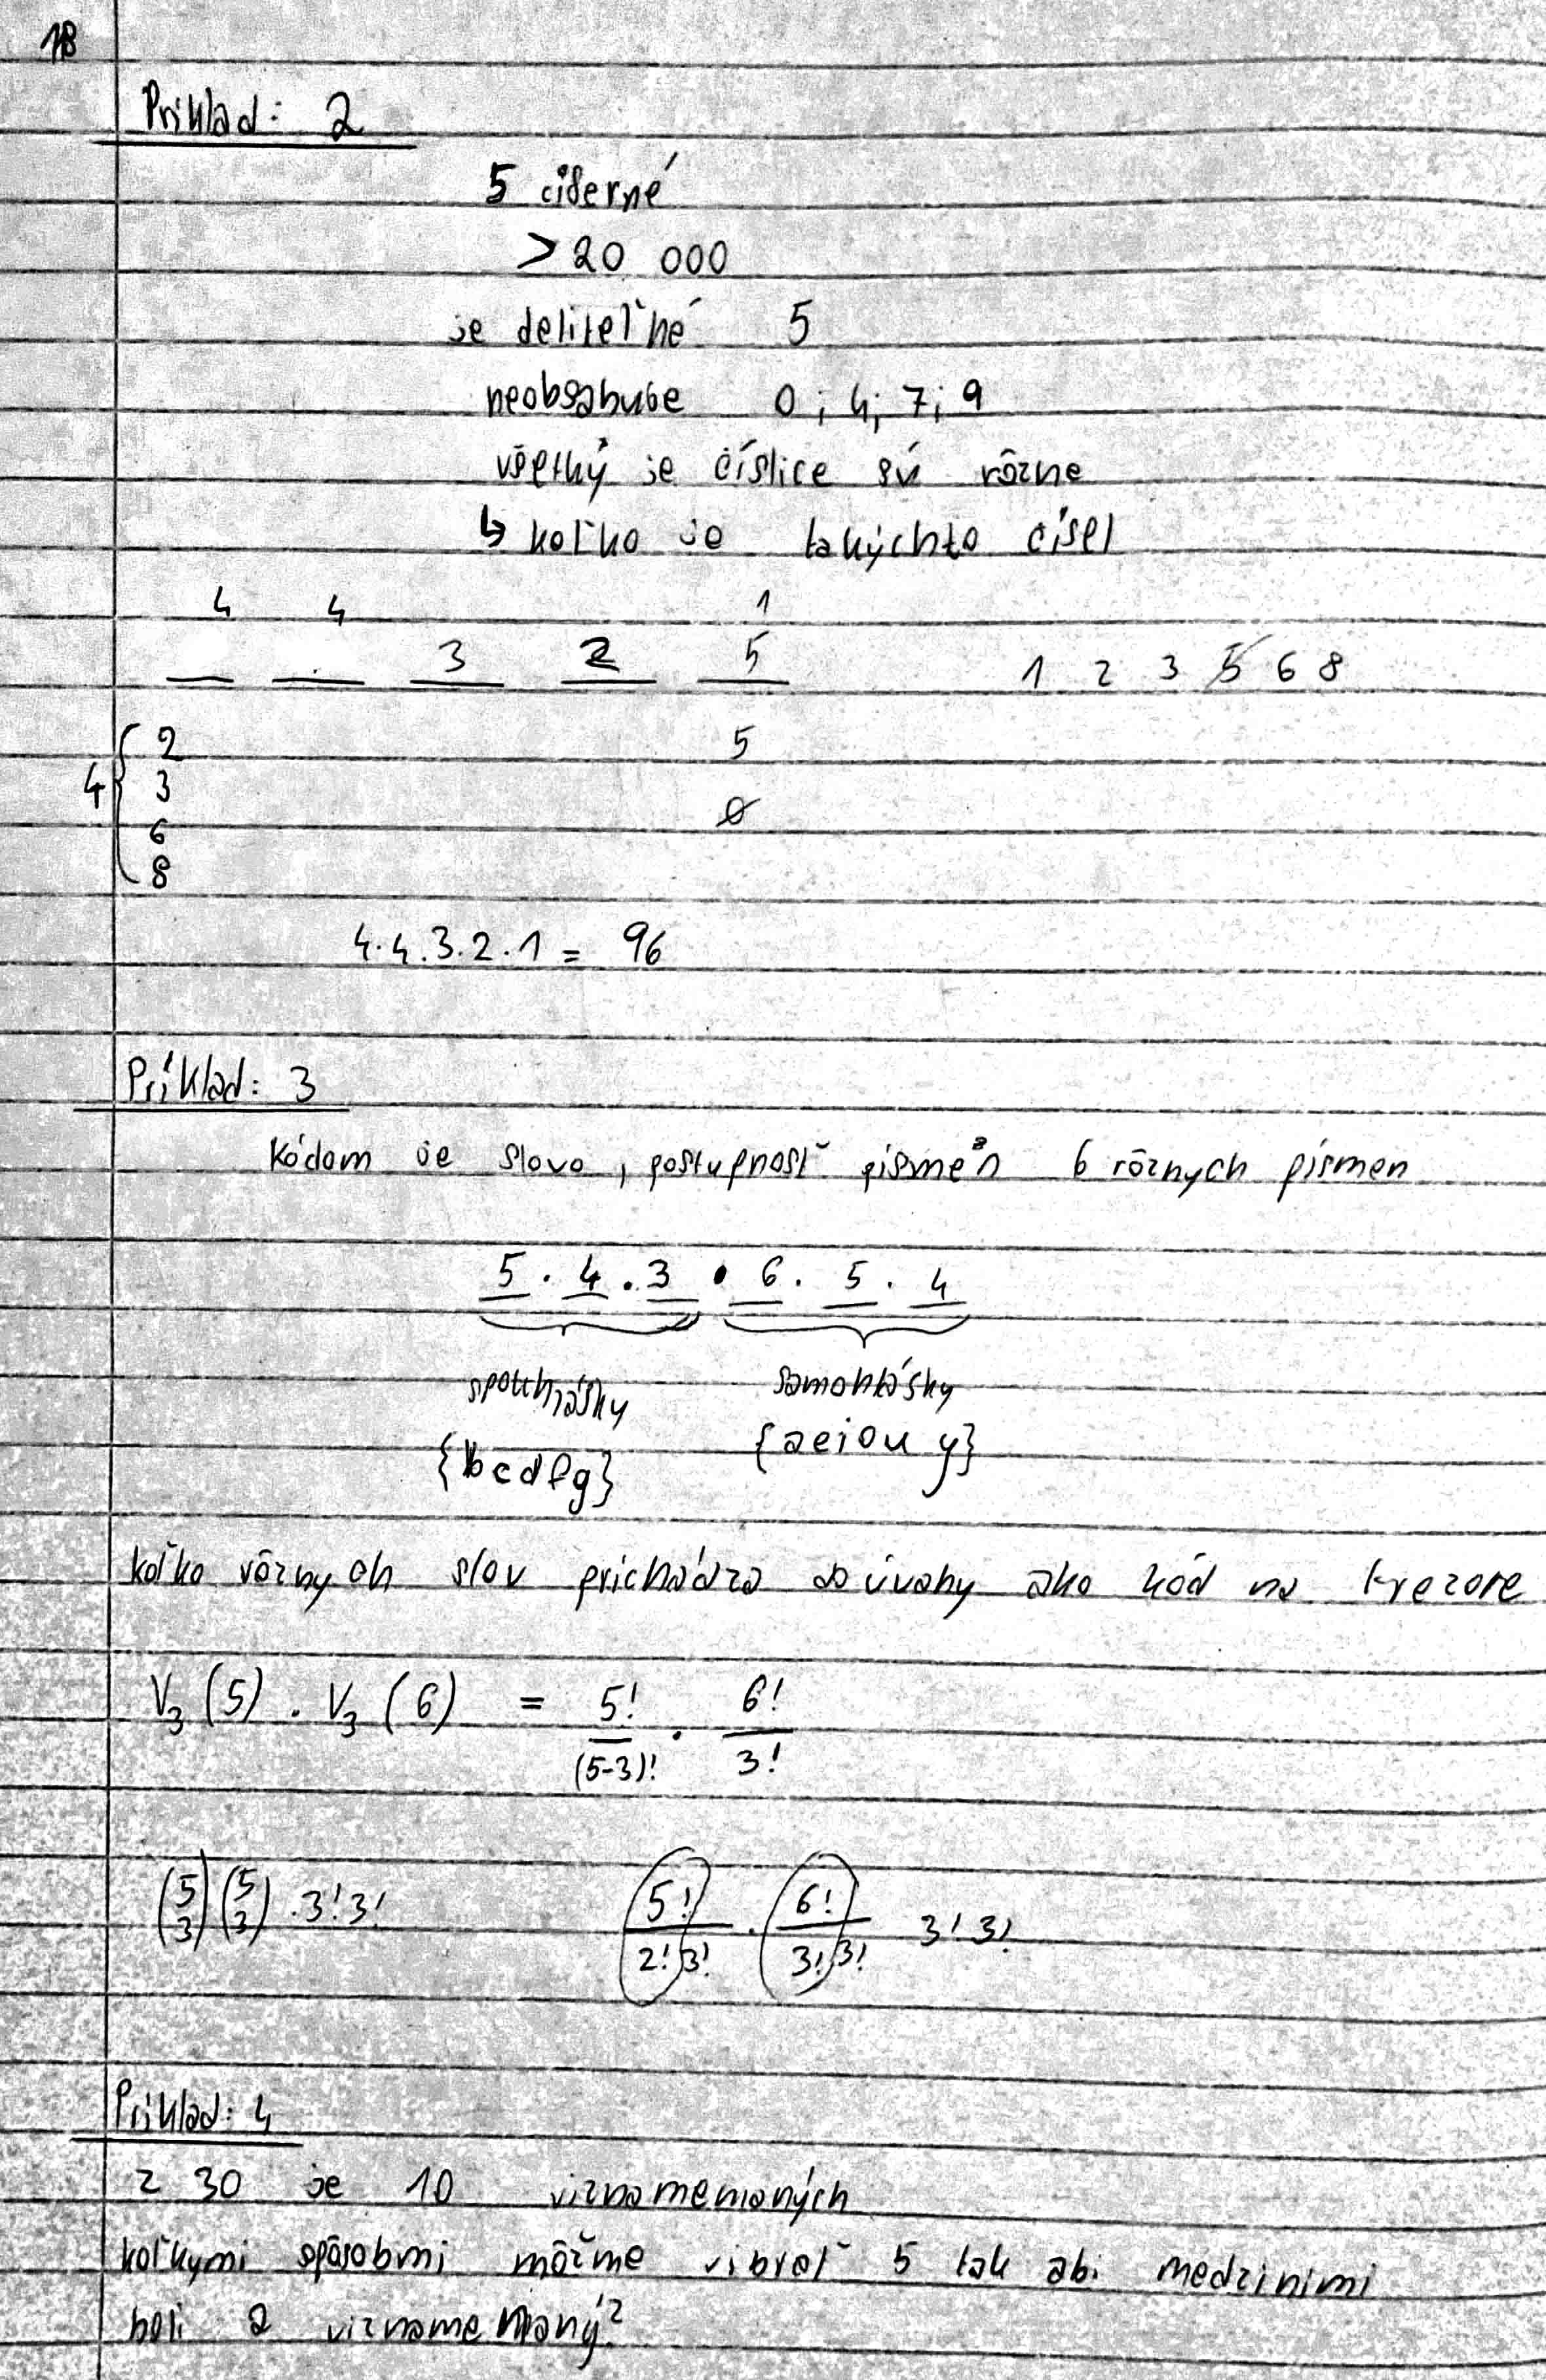 18
Príklad: 2
5 ciferné
> 20 000
je deliteľné 5
neobsahuje 0; 4; 7; 9
všetký je číslice sú rôzne
↳ koľko je takýchto čísel
4 4 1
3 2 5 1 2 3 5 6 8
2 5
4 3
0
6
8
4.4.3.2.1 = 96
Príklad: 3
Kódom je slovo, postupnosť písmen 6 rôznych písmen
5 . 4 . 3 . 6 . 5 . 4
spoluhlásky samohlásky
{bcdfg} {aeiou y}
koľko rôznych slov prichádza do úvahy ako kód na trezore
V₃ (5) . V₃ (6) = 5!/(5-3)! . 6!/3!
(5 3) (5 3) . 3! 3! 5!/2! 3! . 6!/3! 3! 3! 3!
Príklad: 4
z 30 je 10 viznamemaných
koľkymi spôsobmi môžme vibrať 5 tak abi medzinimi
boli 2